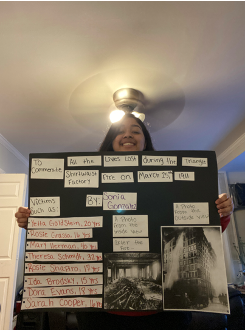 To Commemorate All the Lives Lost during the Triangle
Shirtwaist Factory Fire on March 25th 1911
BY: Sonia
Victims Such as:
Yetta Goldstein, 20 yrs
Rosie Grasso, 16 yrs
Mary Herman, 40 yrs
Theresa Schmidt, 32 yrs
Ida Brodsky, 15 yrs
Dora Evans, 18 yrs
Sarah Cooper, 16 yrs
A Photo from the inside
after the fire
A Photo from the outside view